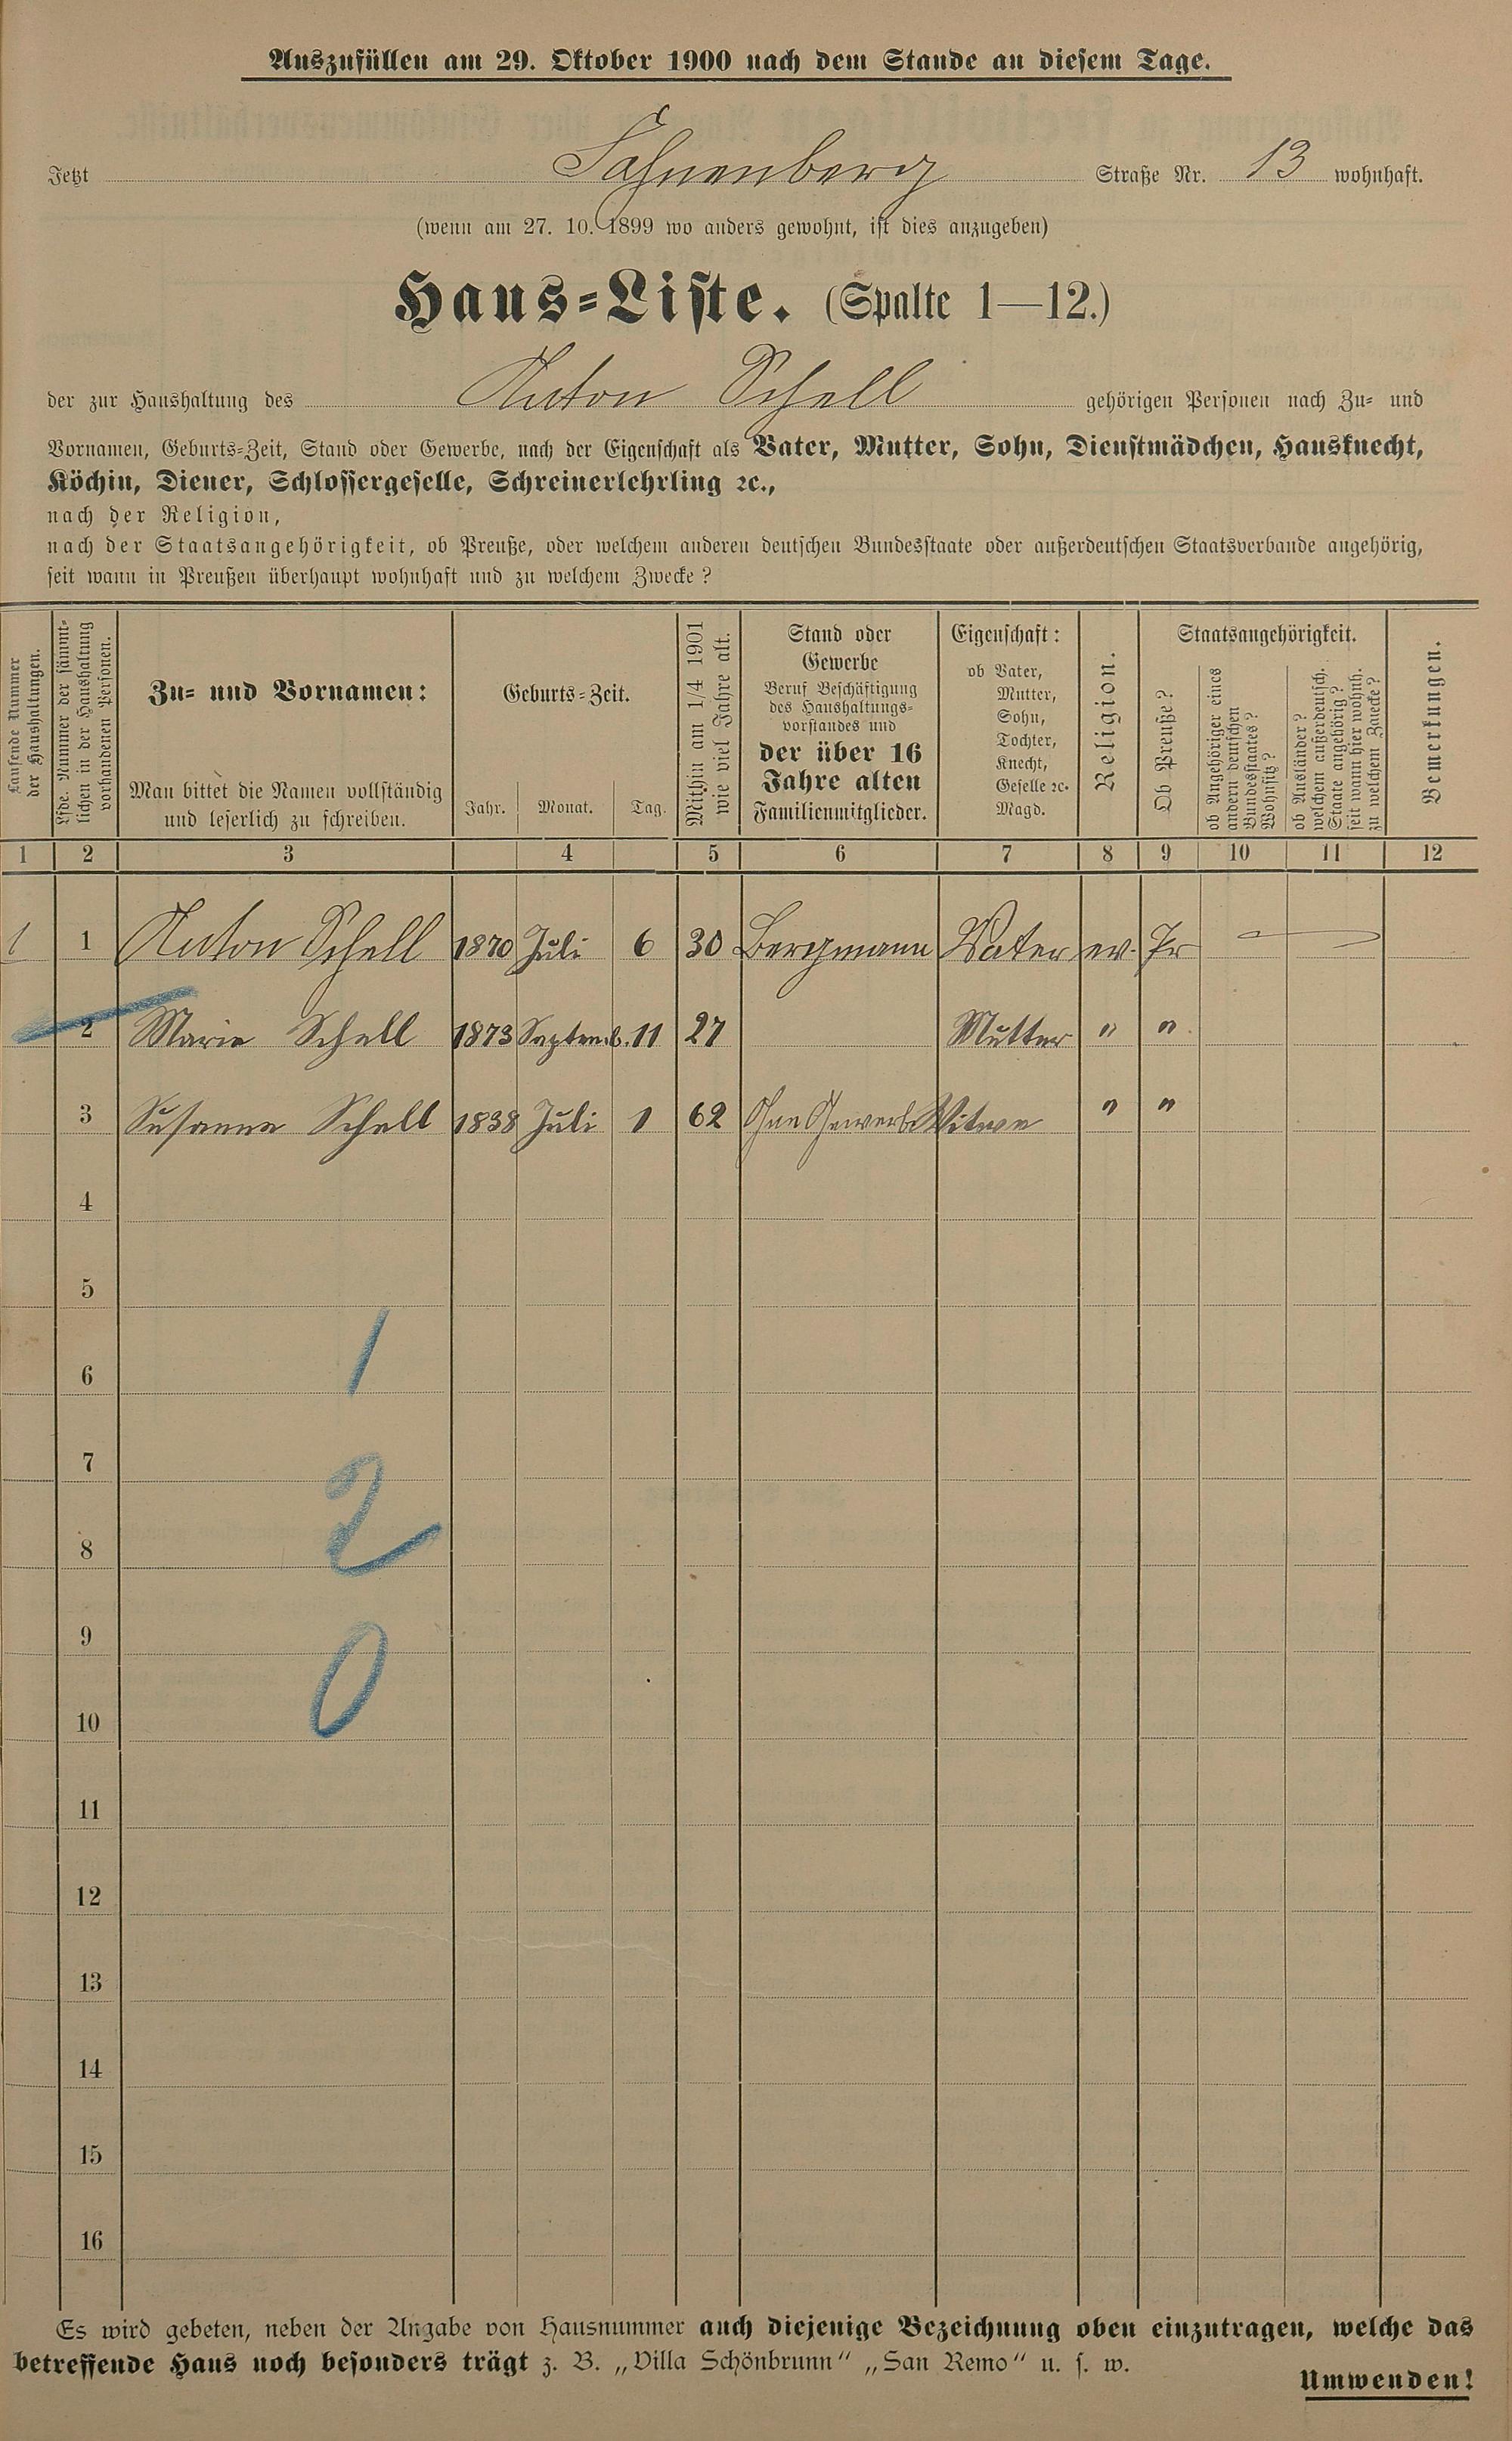 Auszufüllen am 29. Oktober 1900 nach dem Stande an diesem Tage.
Jetzt Hahnenberg Straße Nr. 13 wohnhaft.
(wenn am 27. 10. 1899 wo anders gewohnt, ist dies anzugeben)
Haus-Liste. (Spalte 1—12.)
der zur Haushaltung des Anton Schell gehörigen Personen nach Zu- und
Vornamen, Geburts-Zeit, Stand oder Gewerbe, nach der Eigenschaft als Vater, Mutter, Sohn, Dienstmädchen, Hausknecht,
Köchin, Diener, Schlossergeselle, Schreinerlehrling ꝛc.,
nach der Religion,
nach der Staatsangehörigkeit, ob Preuße, oder welchem anderen deutschen Bundesstaate oder außerdeutschen Staatsverbande angehörig,
seit wann in Preußen überhaupt wohnhaft und zu welchem Zwecke?
Laufende Nummer
der Haushaltungen.
Lfde. Nummer der sämmt-
lichen in der Haushaltung
vorhandenen Personen.
Zu- und Vornamen:
Man bittet die Namen vollständig
und leserlich zu schreiben.
Geburts-Zeit.
Jahr. Monat. Tag.
Mithin am 1/4 1901
wie viel Jahre alt.
Stand oder
Gewerbe
Beruf Beschäftigung
des Haushaltungs-
vorstandes und
der über 16
Jahre alten
Familienmitglieder.
Eigenschaft:
ob Vater,
Mutter,
Sohn,
Tochter,
Knecht,
Geselle ꝛc.
Magd.
Religion.
Staatsangehörigkeit.
Ob Preuße?
ob Angehöriger eines
andern deutschen
Bundesstaates?
Wohnsitz?
ob Ausländer?
welchem außerdeutsch.
Staate angehörig?
seit wann hier wohnh.
zu welchem Zwecke?
Bemerkungen.
1 2 3 4 5 6 7 8 9 10 11 12
1 1 Anton Schell 1870 Juli 6 30 Bergmann Vater ev. Pr
2 Marie Schell 1873 Septemb. 11 27 Mutter " "
3 Susanna Schell 1838 Juli 1 62 Ohne Gewerbe Witwe " "
4
5
6
1
7
2
8
9
0
10
11
12
13
14
15
16
Es wird gebeten, neben der Angabe von Hausnummer auch diejenige Bezeichnung oben einzutragen, welche das
betreffende Haus noch besonders trägt z. B. „Villa Schönbrunn“ „San Remo“ u. s. w.
Umwenden!